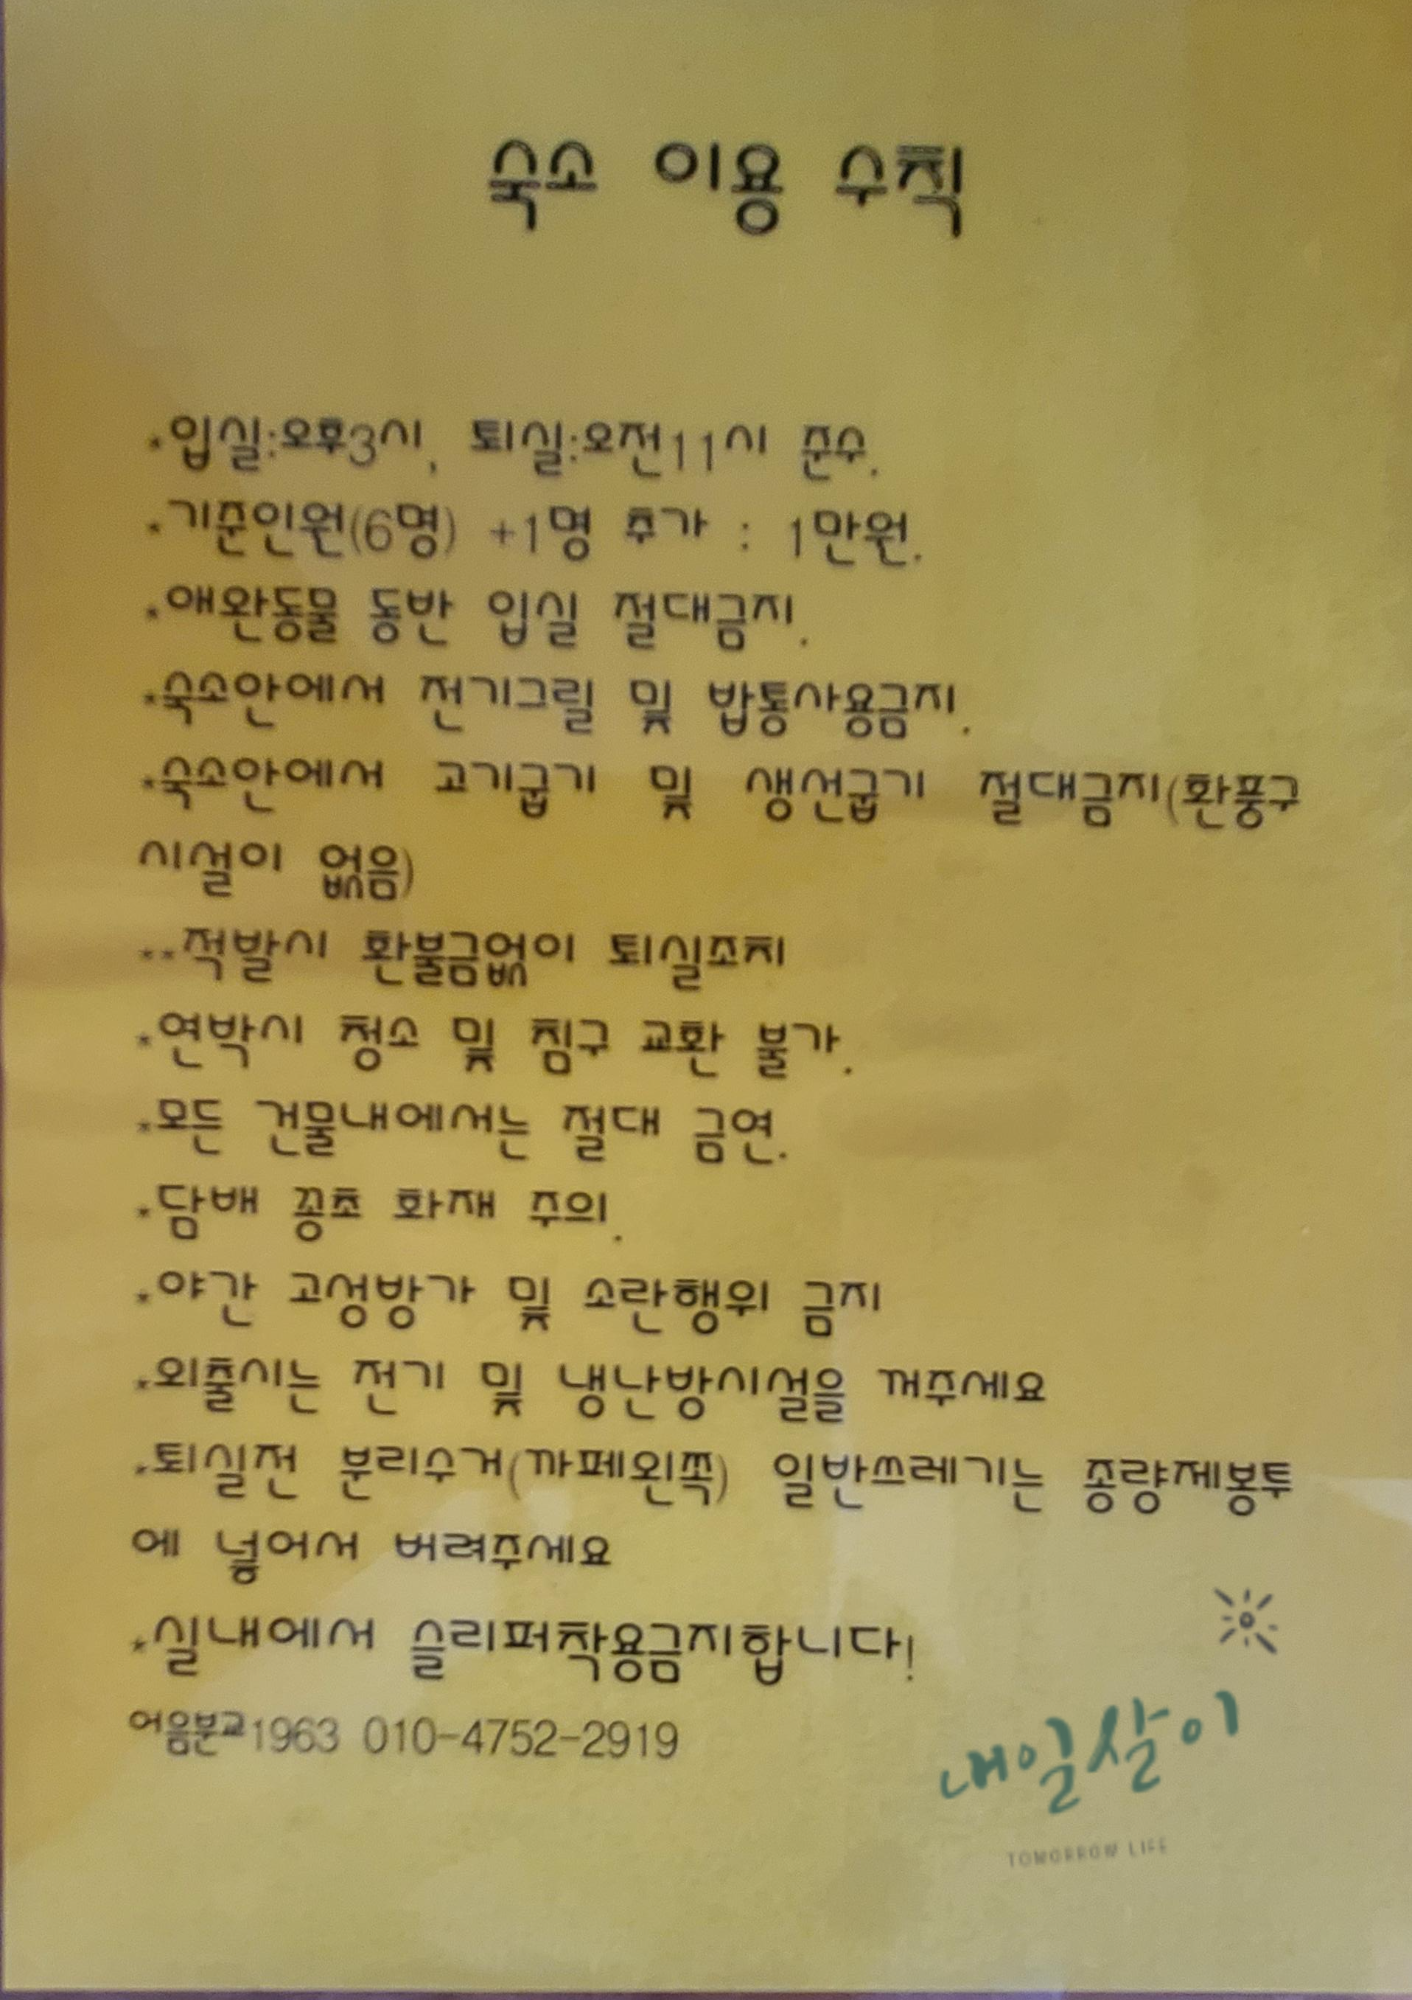 숙소 이용 수칙
*입실:오후3시, 퇴실:오전11시 준수.
*기준인원(6명) +1명 추가 : 1만원.
*애완동물 동반 입실 절대금지.
*숙소안에서 전기그릴 및 밥통사용금지.
*숙소안에서 고기굽기 및 생선굽기 절대금지(환풍구
시설이 없음)
**적발시 환불금없이 퇴실조치
*연박시 청소 및 침구 교환 불가.
*모든 건물내에서는 절대 금연.
*담배 꽁초 화재 주의.
*야간 고성방가 및 소란행위 금지
*외출시는 전기 및 냉난방시설을 꺼주세요
*퇴실전 분리수거(까페왼쪽) 일반쓰레기는 종량제봉투
에 넣어서 버려주세요
*실내에서 슬리퍼착용금지합니다!
어음분교1963 010-4752-2919
내일살이
TOMORROW LIFE